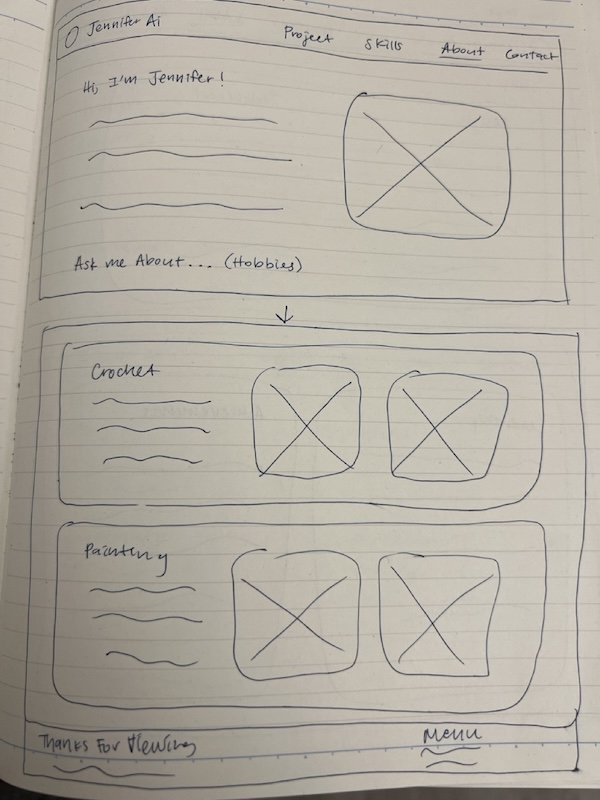 Jennifer Ai
Project Skills About Contact
Hi, I'm Jennifer!
Ask me About... (Hobbies)
Crochet
Painting
Thanks For Viewing
Menu